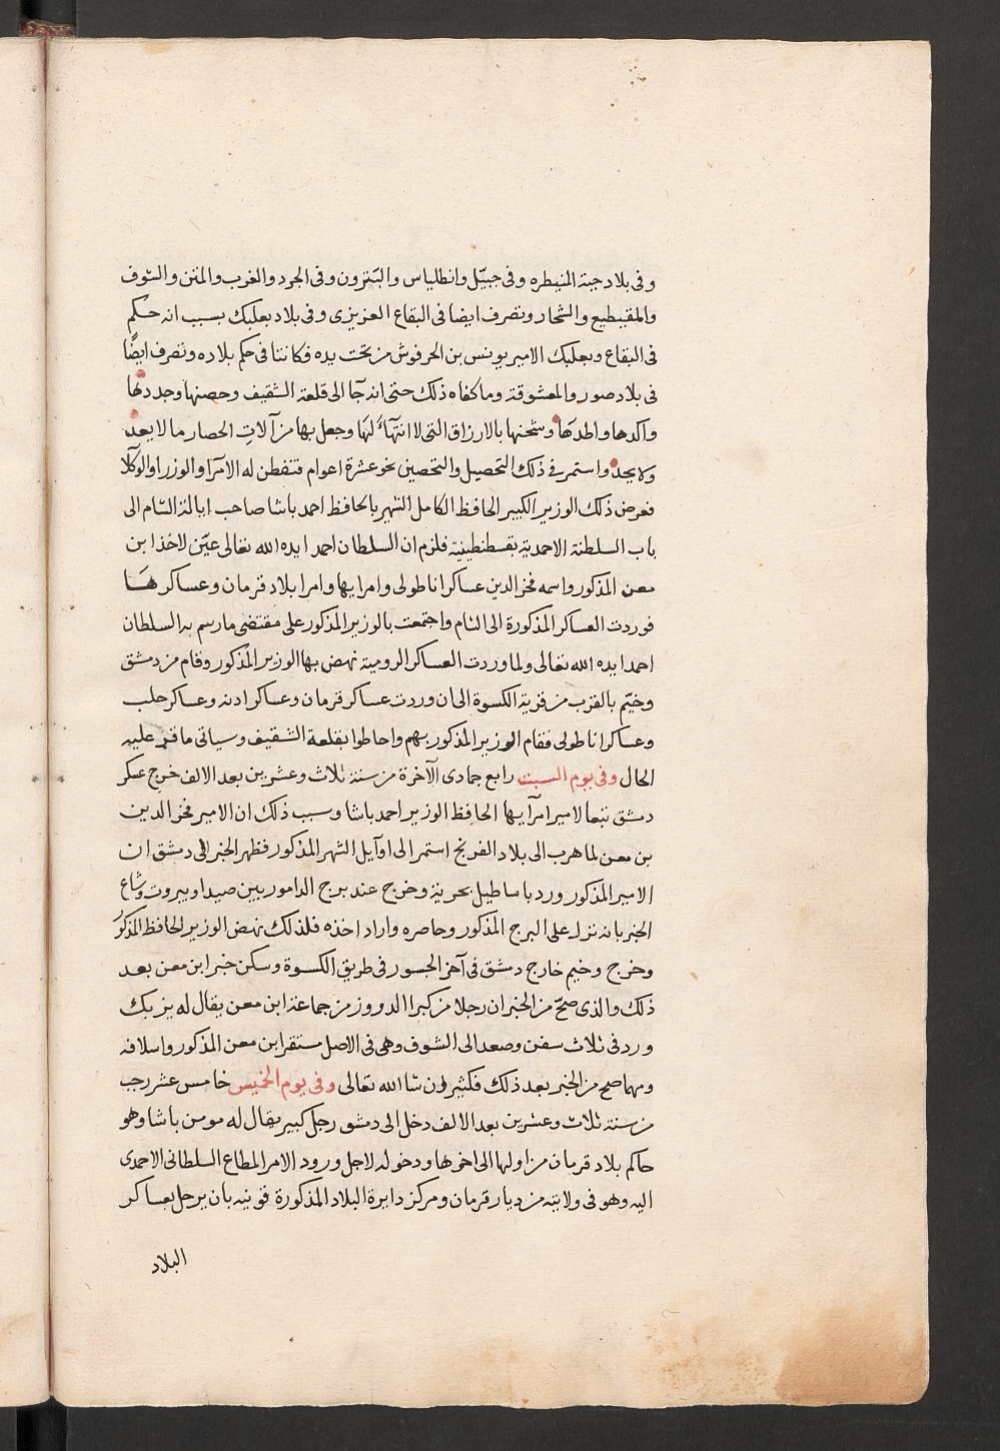 وفى بلاد جبة المنيطره وفى جبيّل وانطلياس والبترون وفى الجرد والغرب والمتن والشوف
والمقيطيع والشحار وتصرف ايضا فى البقاع العزيزى وفى بلاد بعلبك بسبب انه حكم
فى البقاع وبعلبك الامير يونس بن الحرفوش من تحت يده فكانتا فى حكم بلاده وتصرف ايضًا
فى بلاد صور والمعشوقة وما كفاه ذلك حتى انه جآ الى قلعة الشقيف وحصنها وجددها
واكدها واطدها وشحنها بالارزاق التى لا انتهآء لها وجعل بها من آلات الحصار ما لا يعد
ولا يحد واستمر فى ذلك التحصيل والتحصين نحو عشرة اعوام فتفطن له الامرآ والوزرا والوكلا
فعرض ذلك الوزير الكبير الحافظ الكامل الشهير بالحافظ احمد باشا صاحب ايالة الشام الى
باب السلطنة الاحمدية بقسطنطينية فلزم ان السلطان احمد ايده الله تعالى عيّن لاخذ ابن
معن المذكور واسمه فخر الدين عساكر اناطولى وامرايها وامرا بلاد قرمان وعساكرها
فوردت العساكر المذكورة الى الشام واجتمعت بالوزير المذكور على مقتضى ما رسم به السلطان
احمد ايده الله تعالى ولما وردت العساكر الرومية نهض بها الوزير المذكور وقام من دمشق
وخيّم بالقرب من قرية الكسوة الى ان وردت عساكر قرمان وعساكر ادنه وعساكر حلب
وعساكر اناطولى فقام الوزير المذكور بهم واحاطوا بقلعة الشقيف وسياتى ما قر عليه
الحال وفى يوم السبت رابع جمادى الآخرة من سنة ثلاث وعشرين بعد الالف خرج عسكر
دمشق تبعا لامير امرآيها الحافظ الوزير احمد باشا وسبب ذلك ان الامير فخر الدين
بن معن لما هرب الى بلاد الفرنج استمر الى اوآيل الشهر المذكور فظهر الخبر الى دمشق ان
الامير المذكور ورد باساطيل بحرية وخرج عند برج الدامور بين صيدا وبيروت وشاع
الخبر بانه نزل على البرج المذكور وحاصره واراد اخذه فلذلك نهض الوزير الحافظ المذكور
وخرج وخيم خارج دمشق فى آخر الجسور فى طريق الكسوة وسكن خبر ابن معن بعد
ذلك والذى صحّ من الخبر ان رجلا من كبرا الدروز من جماعة ابن معن يقال له يزبك
ورد فى ثلاث سفن وصعد الى الشوف وهى فى الاصل مستقر ابن معن المذكور واسلافه
ومهما صح من الخبر بعد ذلك فكثير ان شا الله تعالى وفى يوم الخميس خامس عشر رجب
من سنة ثلاث وعشرين بعد الالف دخل الى دمشق رجل كبير يقال له مومن باشا وهو
حاكم بلاد قرمان من اولها الى اخرها ودخوله لاجل ورود الامر المطاع السلطانى الاحمدى
اليه وهو فى ولايته من ديار قرمان ومركز دايرة البلاد المذكورة قونيه بان يرحل بعساكر
البلاد